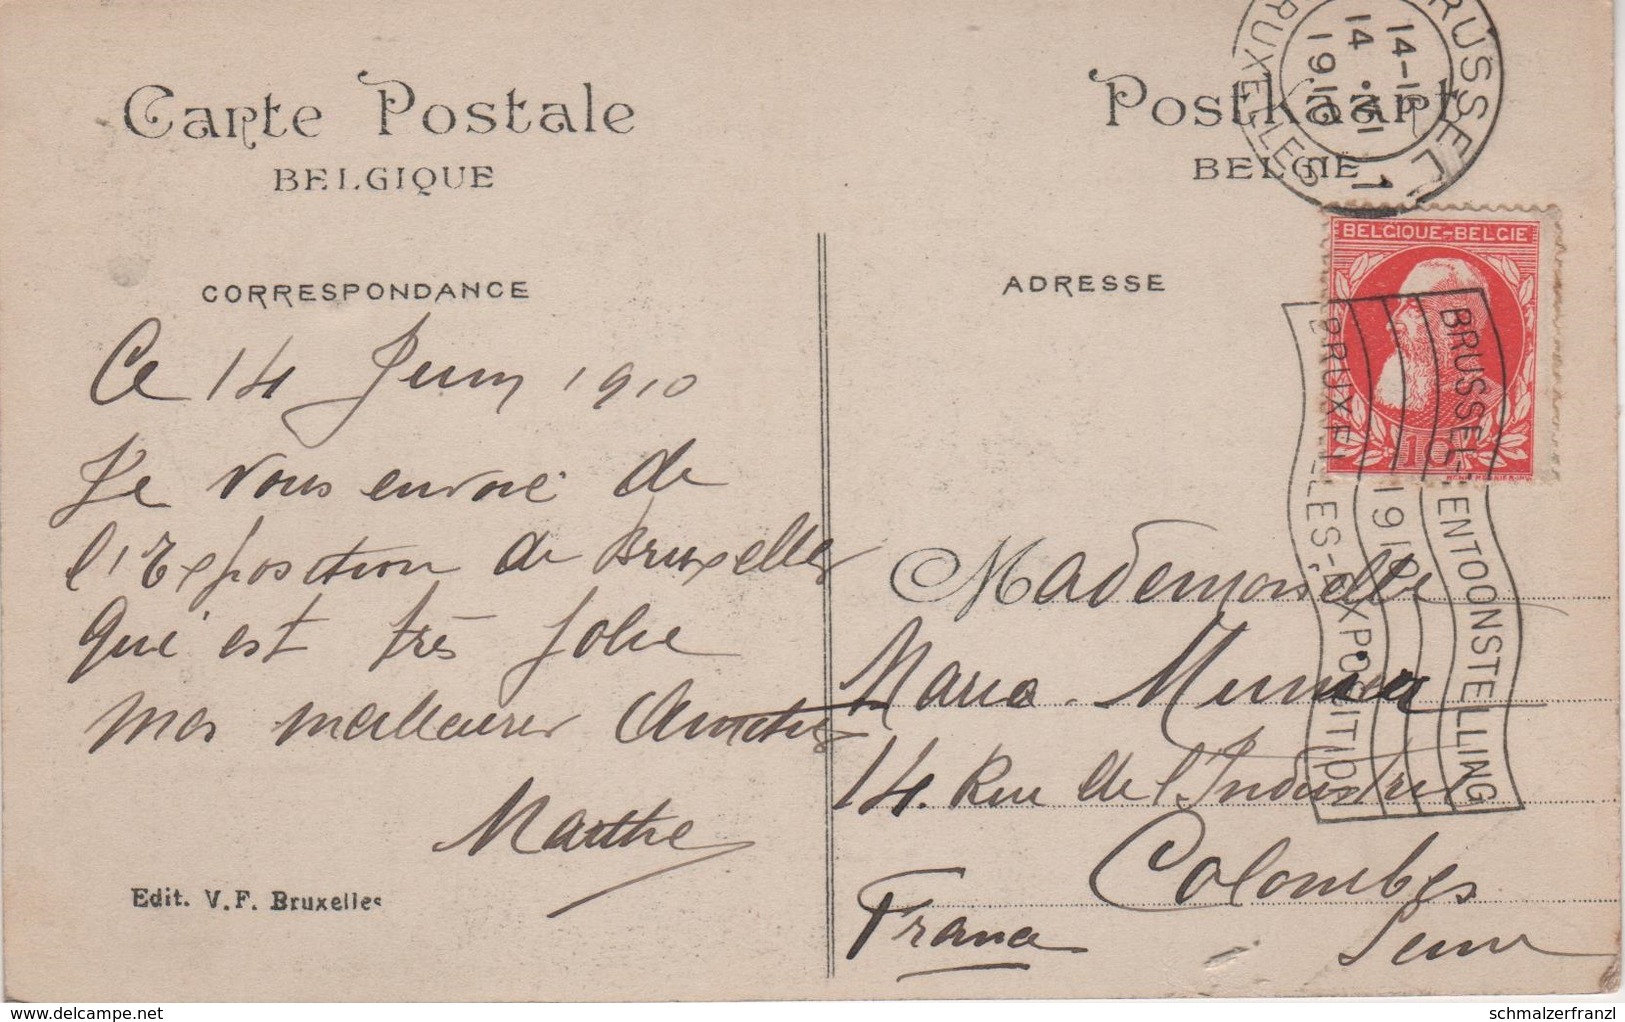 Carte Postale
BELGIQUE
CORRESPONDANCE
Ce 14 Juin 1910
Je vous envoie de
l'Exposition de Bruxelles
qui est très jolie
mes meilleures Amitiés
Marthe
Edit. V.F. Bruxelles
Postkaart
BELGIE
ADRESSE
BRUSSEL 1
BRUXELLES
14-15
14 VI
1910
BELGIQUE-BELGIE
10
BRUSSEL-TENTOONSTELLING
1910
BRUXELLES-EXPOSITION
Mademoiselle
Maria Munier
14. Rue de l'Industrie
Colombes
Seine
France
www.delcampe.net
schmalzerfranzl